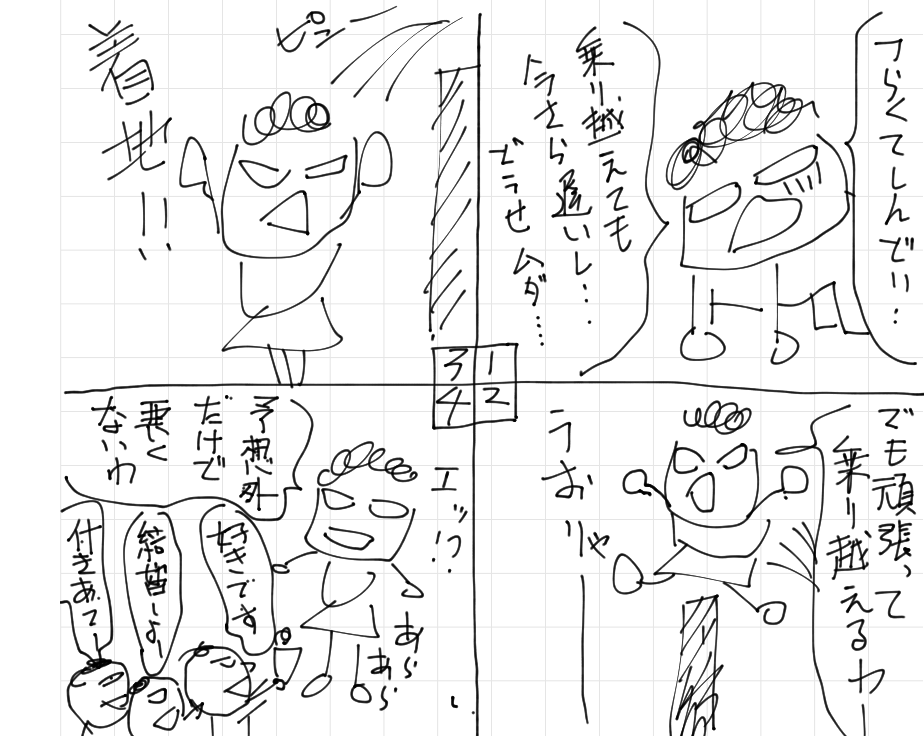 つらくてしんどい…
乗り越えても
トラさら遠いし…
どうせムダ……
1
でも頑張って
乗り越えるわ
うおりゃー
2
ピュー
着地!!
3
エッ!?
予想外
だけで
悪く
ないわ
あら
あら
好きです
結婚しよー
付きあてー
4